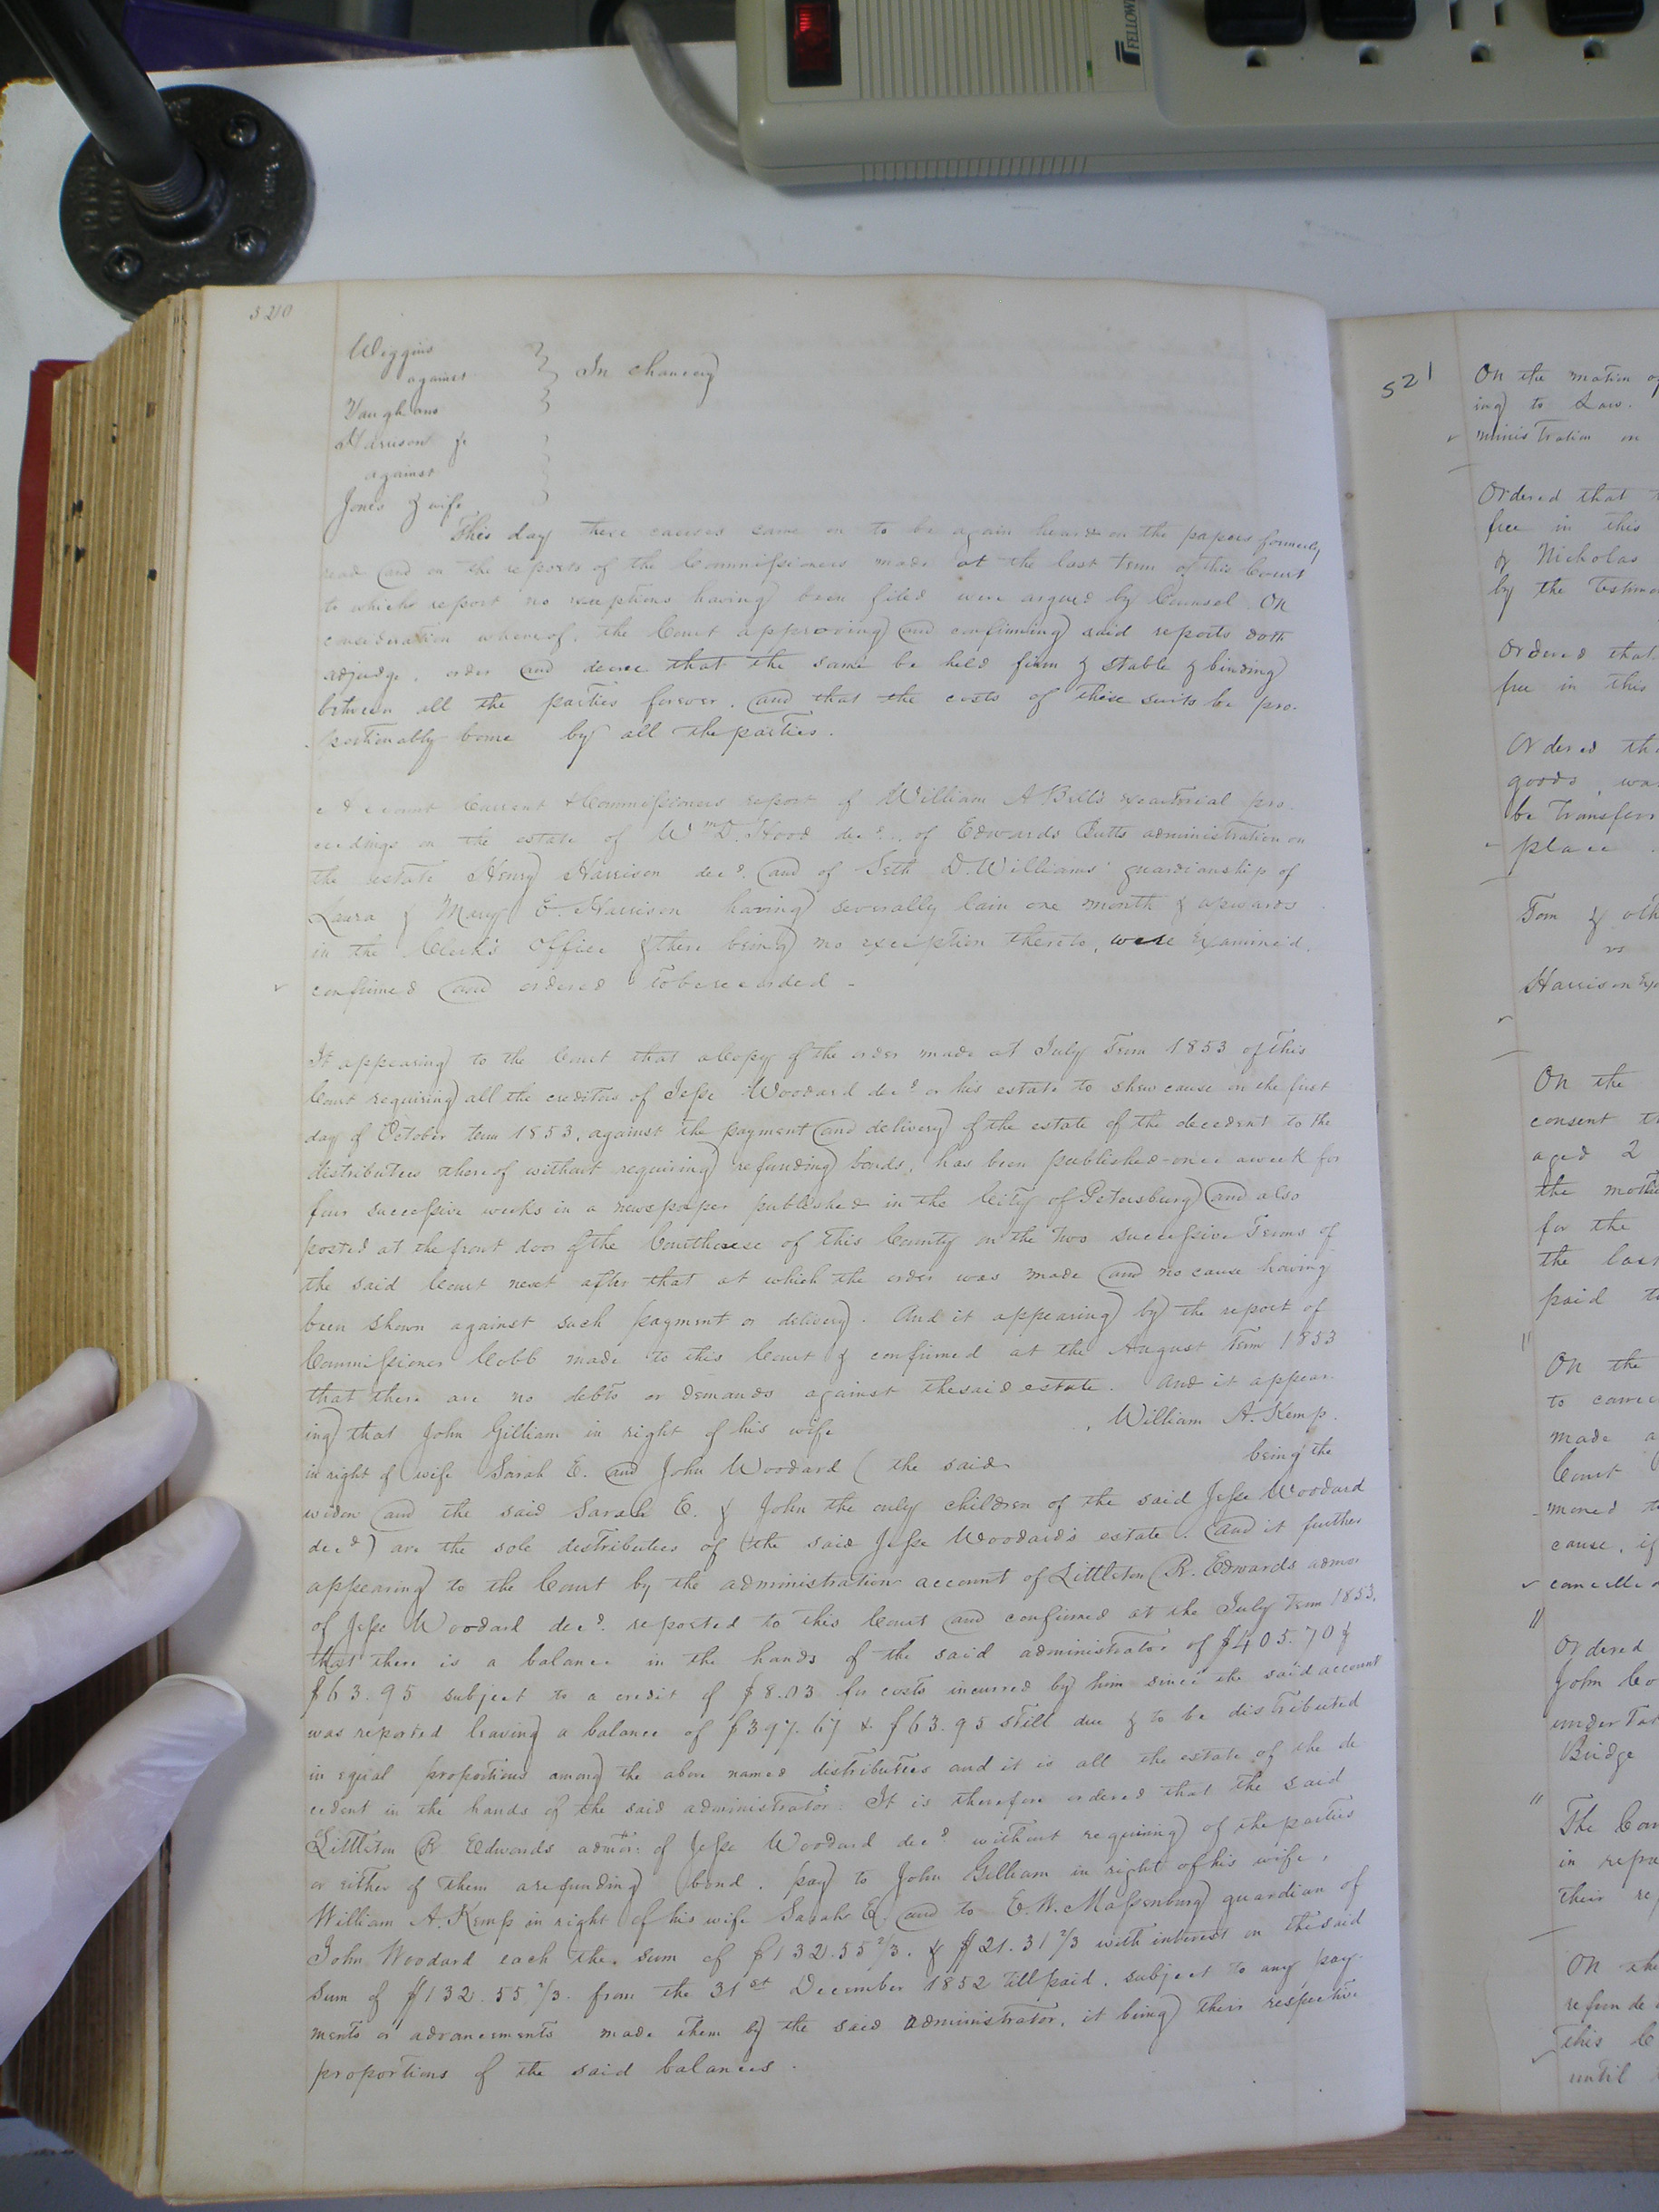 FELLOWE
520
Wiggins
against
Vaughans
In chancery
Harrison &
against
Jones & wife
This day these causes came on to be again heard on the papers formerly
read and on the reports of the Commissioners made at the last term of this Court
to which report no exceptions having been filed were argued by Counsel. On
consideration whereof, the Court approving and confirming said reports doth
adjudge, order and decree that the same be held firm & stable & binding
between all the parties forever. and that the costs of these suits be pro-
portionably borne by all the parties.
Account Current & Commissioners report of William A Bell's executorial pro-
ceedings on the estate of Wm D. Hood decd. of Edwards Butts administration on
the estate Henry Harrison decd. and of Seth D. Williams' guardianship of
Laura & Mary E. Harrison having severally lain one month & upwards
in the Clerk's Office & there being no exception thereto, were examined,
confirmed and ordered to be recorded -
It appearing to the Court that a Copy of the order made at July Term 1853 of this
Court requiring all the creditors of Jesse Woodard decd or his estate to shew cause on the first
day of October term 1853, against the payment and delivery of the estate of the decedent to the
distributees thereof without requiring refunding bonds, has been published once a week for
four successive weeks in a newspaper published in the City of Petersburg and also
posted at the front door of the Courthouse of this County on the two successive Terms of
the said Court next after that at which the order was made and no cause having
been shown against such payment or delivery. And it appearing by the report of
Commissioner Cobb made to this Court & confirmed at the August Term 1853
that there are no debts or demands against the said estate. And it appear-
ing that John Gilliam in right of his wife , William A. Kemp
in right of wife Sarah E. and John Woodard ( the said being the
widow and the said Sarah E. & John the only children of the said Jesse Woodard
decd) are the sole distributees of the said Jesse Woodard's estate. and it further
appearing to the Court by the administration account of Littleton R. Edwards admor
of Jesse Woodard decd. reported to this Court and confirmed at the July Term 1853,
that there is a balance in the hands of the said administrator of $405.70 &
$63.95 subject to a credit of $8.03 for costs incurred by him since the said account
was reported leaving a balance of $397.67 & $63.95 still due & to be distributed
in equal proportions among the above named distributees and it is all the estate of the de
cedent in the hands of the said administrator. It is therefore ordered that the said
Littleton R Edwards admor. of Jesse Woodard decd without requiring of the parties
or either of them a refunding bond, pay to John Gilliam in right of his wife,
William A. Kemp in right of his wife Sarah E. and to E. W. Massenburg guardian of
John Woodard each the sum of $132.55 2/3. & $21.31 2/3 with interest on the said
sum of $132.55 2/3. from the 31st December 1852 till paid, subject to any pay-
ments or advancements made them by the said administrator, it being their respective
proportions of the said balances.
521
On the motion of
ing to Law.
ministration on
Ordered that
free in this
of Nicholas
by the testimo
Ordered that
free in this
Ordered th
goods, was
be transferr
place.
Tom & oth
vs
Harrison Ex
On the
consent th
aged 2
the moth
for the
the last
paid to
On the
to carri
made a
Court
moned t
cause, if
cancelled
Ordered
John Co
under Tak
Bridge
The Com
in repa
their re
On the
refunde
this C
until